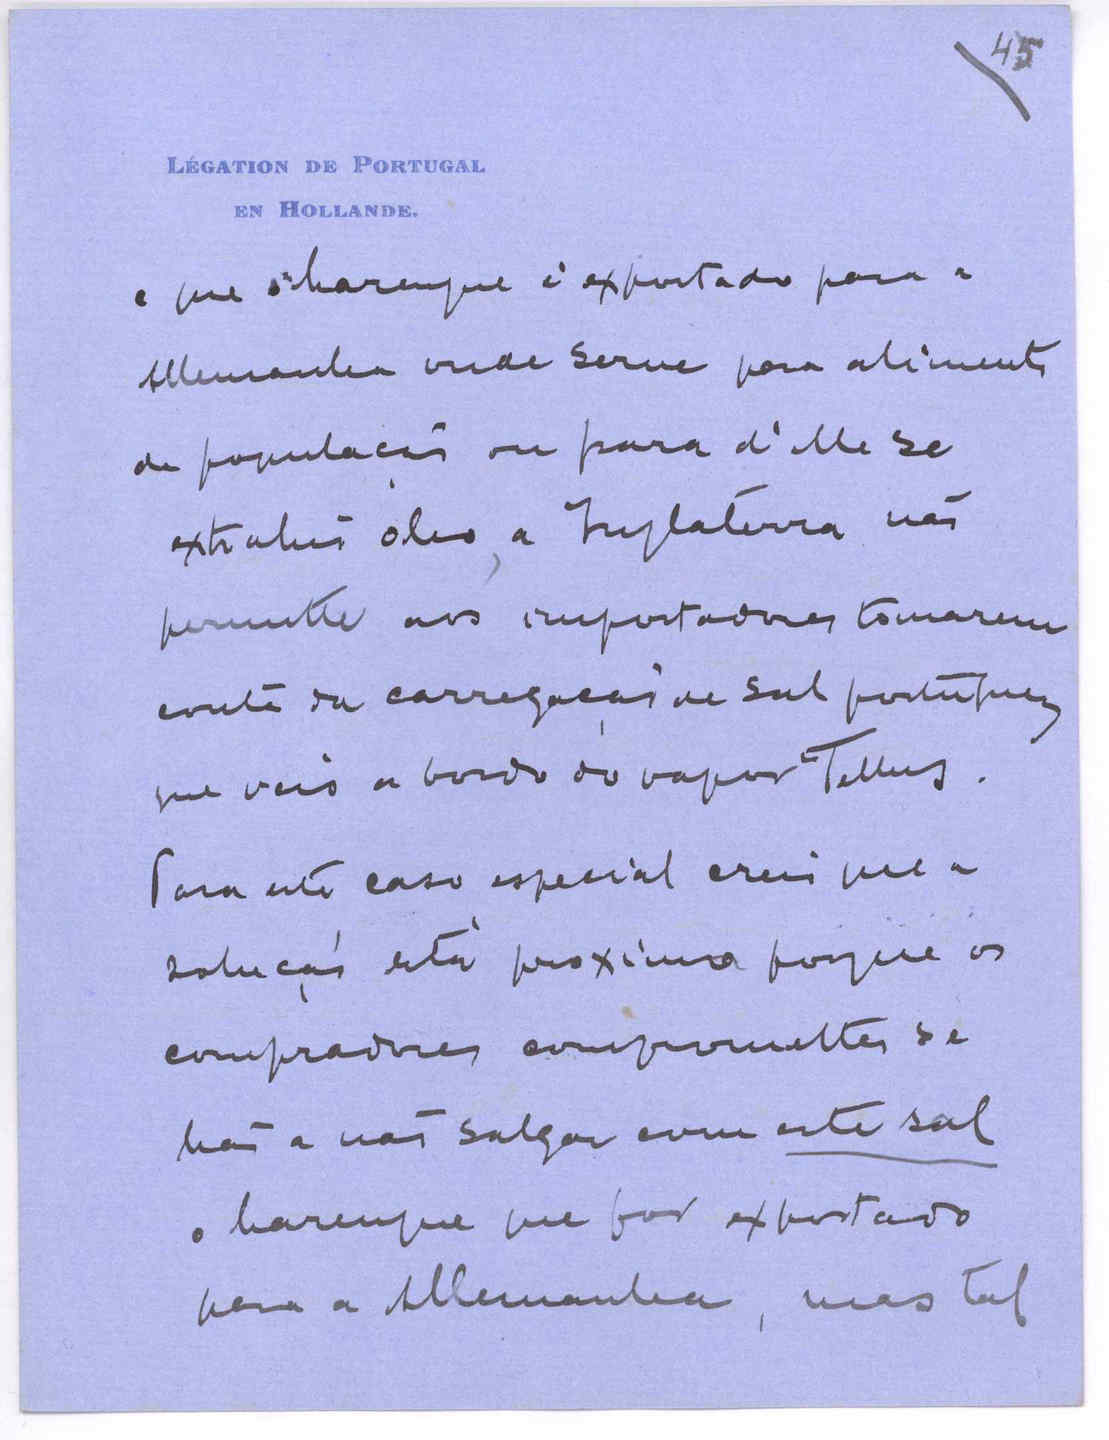 45
LÉGATION DE PORTUGAL
EN HOLLANDE.
e que o harenque é exportado para a
Allemanha onde serve para alimento
da população ou para d'elle se
extrahir óleo, a Inglaterra não
permitte aos importadores tomarem
conta da carregação de sal portuguez
que veio a bordo do vapor Tellus.
Para este caso especial creio que a
solução está proxima porque os
compradores comprometter se
hão a não salgar com este sal
o harenque que for exportado
para a Allemanha, mas tal